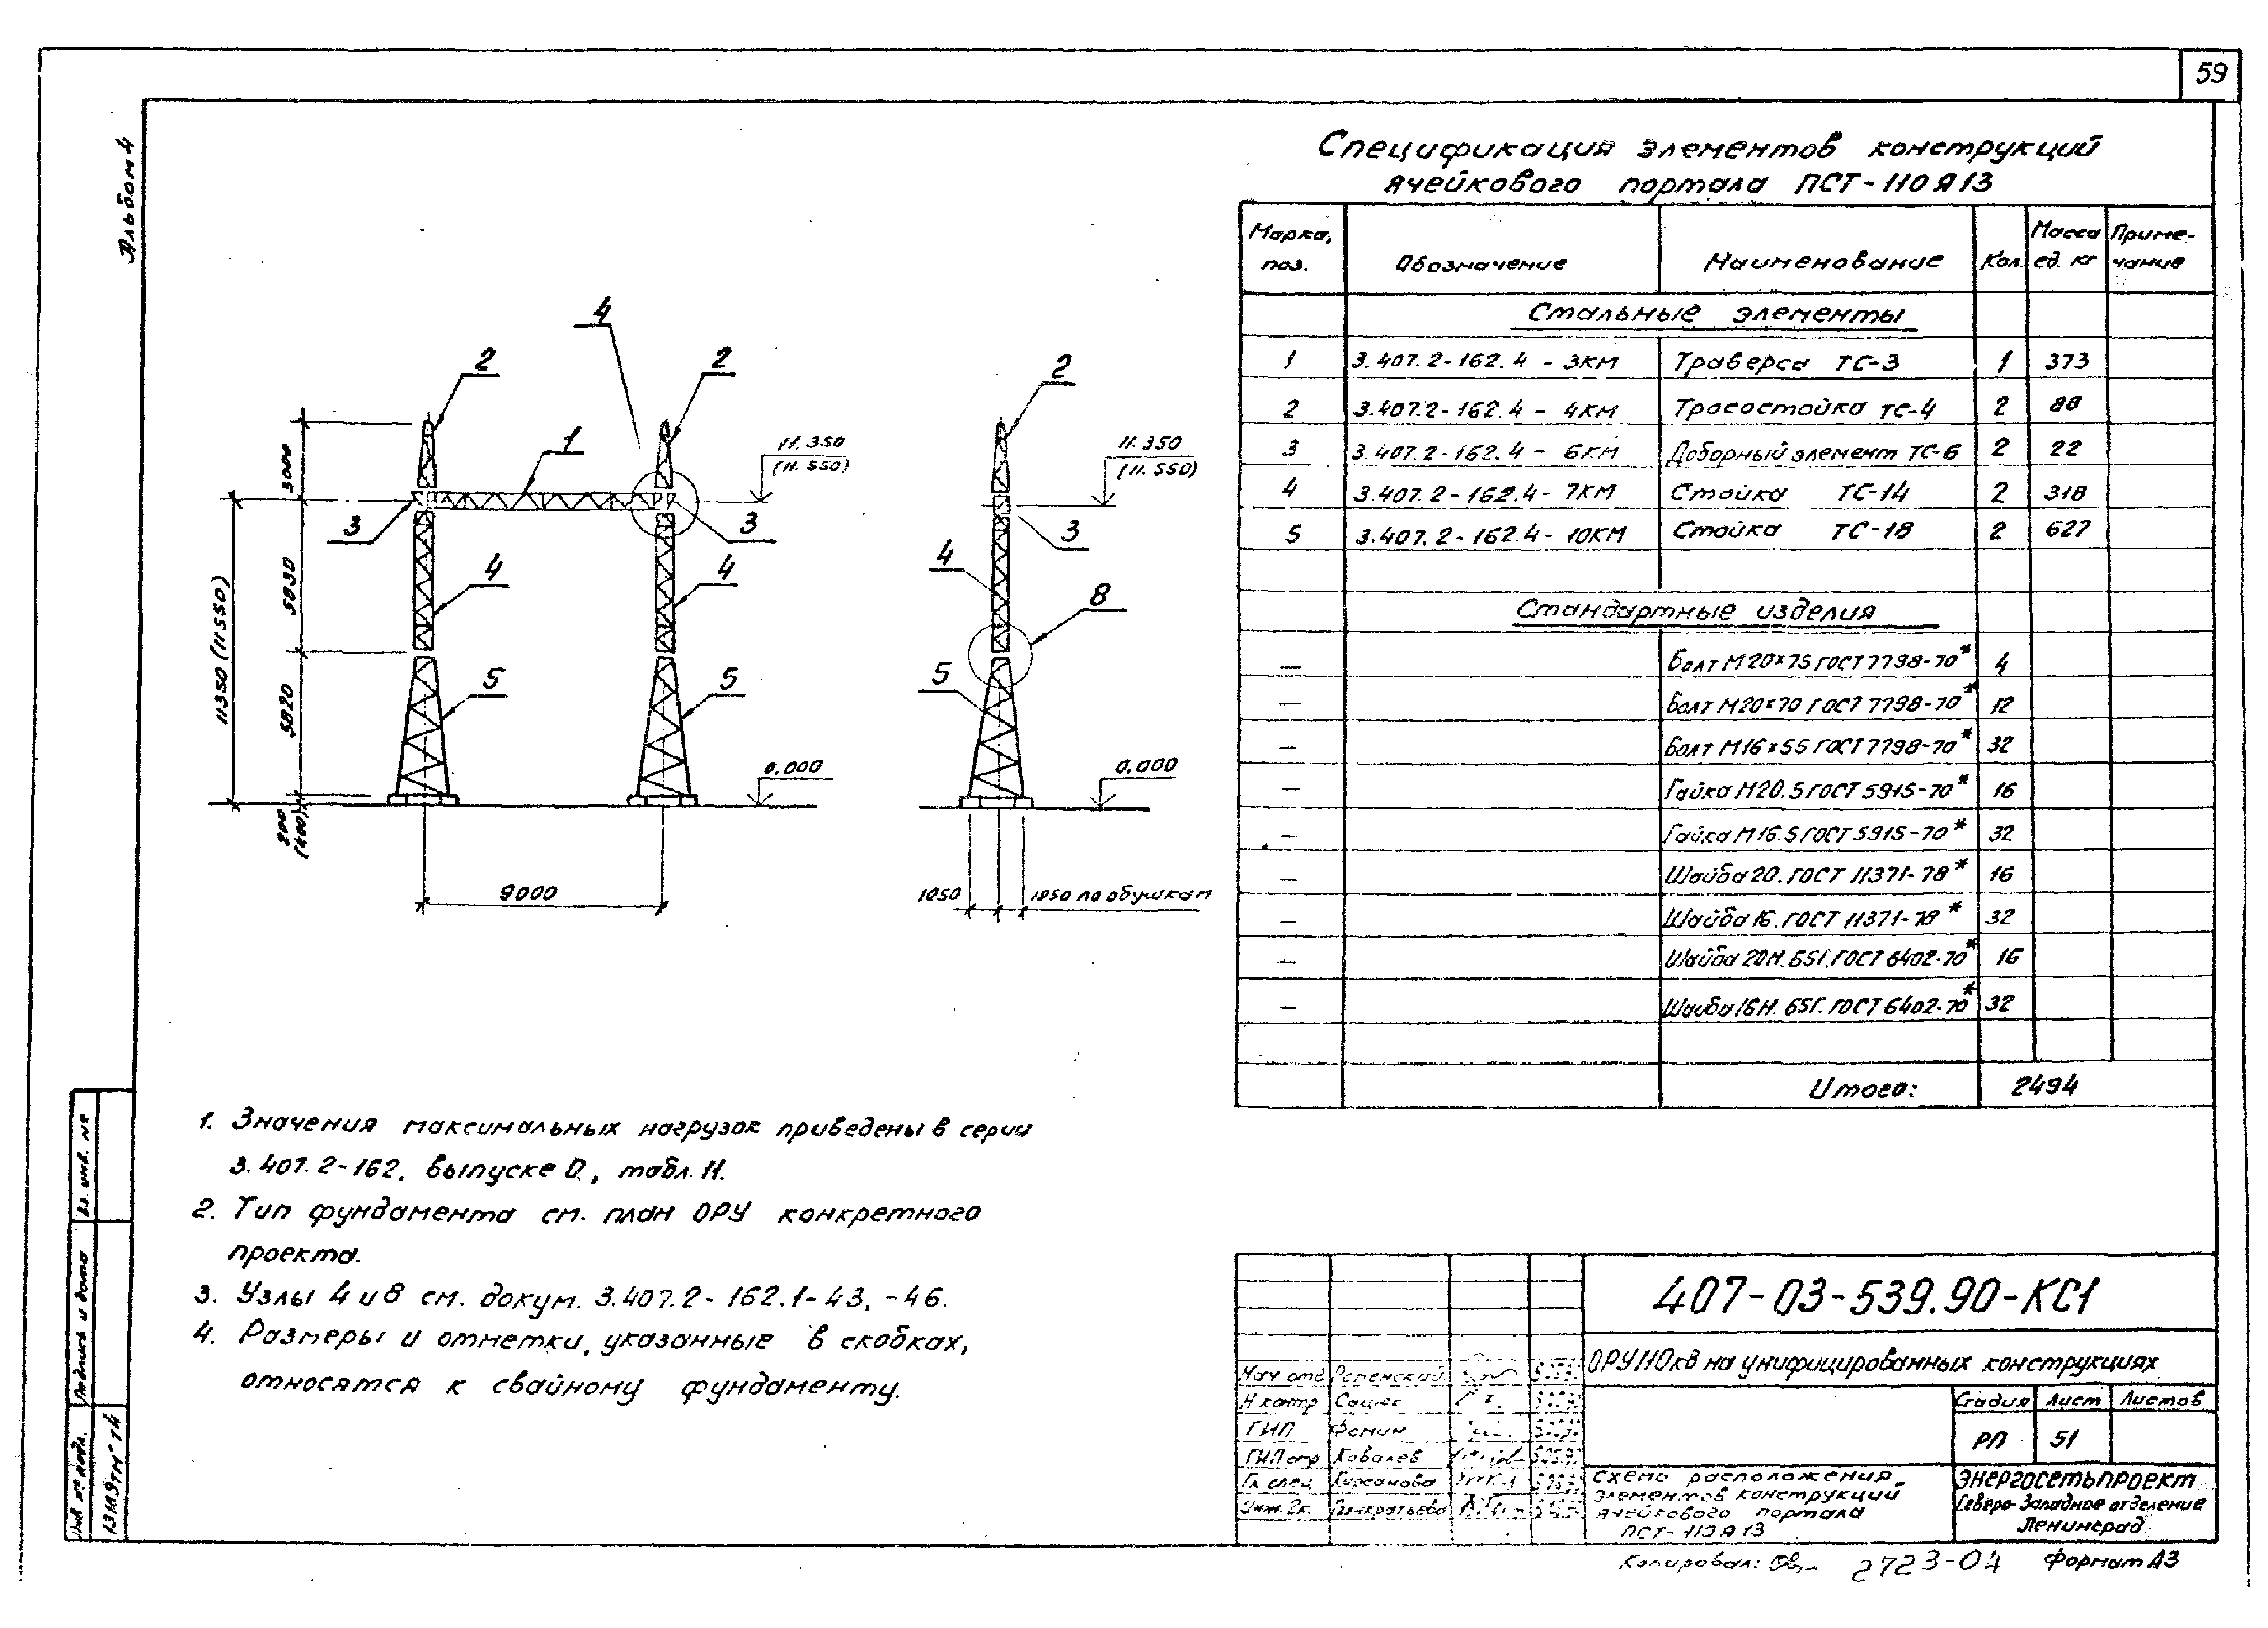 59
Альбом 4
Спецификация элементов конструкций
ячейкового портала ПСТ-110Я13
Марка, поз. Обозначение Наименование Кол. Масса ед. кг Примечание
Стальные элементы
1 3.407.2-162.4-3КМ Траверса ТС-3 1 373
2 3.407.2-162.4-4КМ Тросостойка ТС-4 2 88
3 3.407.2-162.4-6КМ Доборный элемент ТС-6 2 22
4 3.407.2-162.4-7КМ Стойка ТС-14 2 318
5 3.407.2-162.4-10КМ Стойка ТС-18 2 627
Стандартные изделия
— Болт М20×75 ГОСТ 7798-70* 4
— Болт М20×70 ГОСТ 7798-70* 12
— Болт М16×55 ГОСТ 7798-70* 32
— Гайка М20.5 ГОСТ 5915-70* 16
— Гайка М16.5 ГОСТ 5915-70* 32
— Шайба 20. ГОСТ 11371-78* 16
— Шайба 16. ГОСТ 11371-78* 32
— Шайба 20Н.65Г.ГОСТ 6402-70* 16
— Шайба 16Н.65Г.ГОСТ 6402-70* 32
Итого: 2494
4
2 2 2
1
11.350
(11.550)
11.350
(11.550)
3 3 3
4 4 4
8
5 5 5
0,000 0,000
3000
5830
5820
200
(400)
11350 (11550)
9000
1050 1050 по обушкам
1. Значения максимальных нагрузок приведены в серии
3.407.2-162, выпуске 0, табл. 11.
2. Тип фундамента см. план ОРУ конкретного
проекта.
3. Узлы 4 и 8 см. докум. 3.407.2-162.1-43, -46.
4. Размеры и отметки, указанные в скобках,
относятся к свайному фундаменту.
Вз. инв. №
Подпись и дата
Инв. № подл.
407-03-539.90-КС1
ОРУ 110кВ на унифицированных конструкциях
Нач отд Роменский
Н контр Сацюк
ГИП Фомин
ГИП стр Ковалев
Гл спец Курсанова
Инж. 2к. Панкратьева
Стадия Лист Листов
РП 51
Схема расположения
элементов конструкций
ячейкового портала
ПСТ-110Я13
Энергосетьпроект
Северо-Западное отделение
Ленинград
Копировал: 2723-04 Формат А3